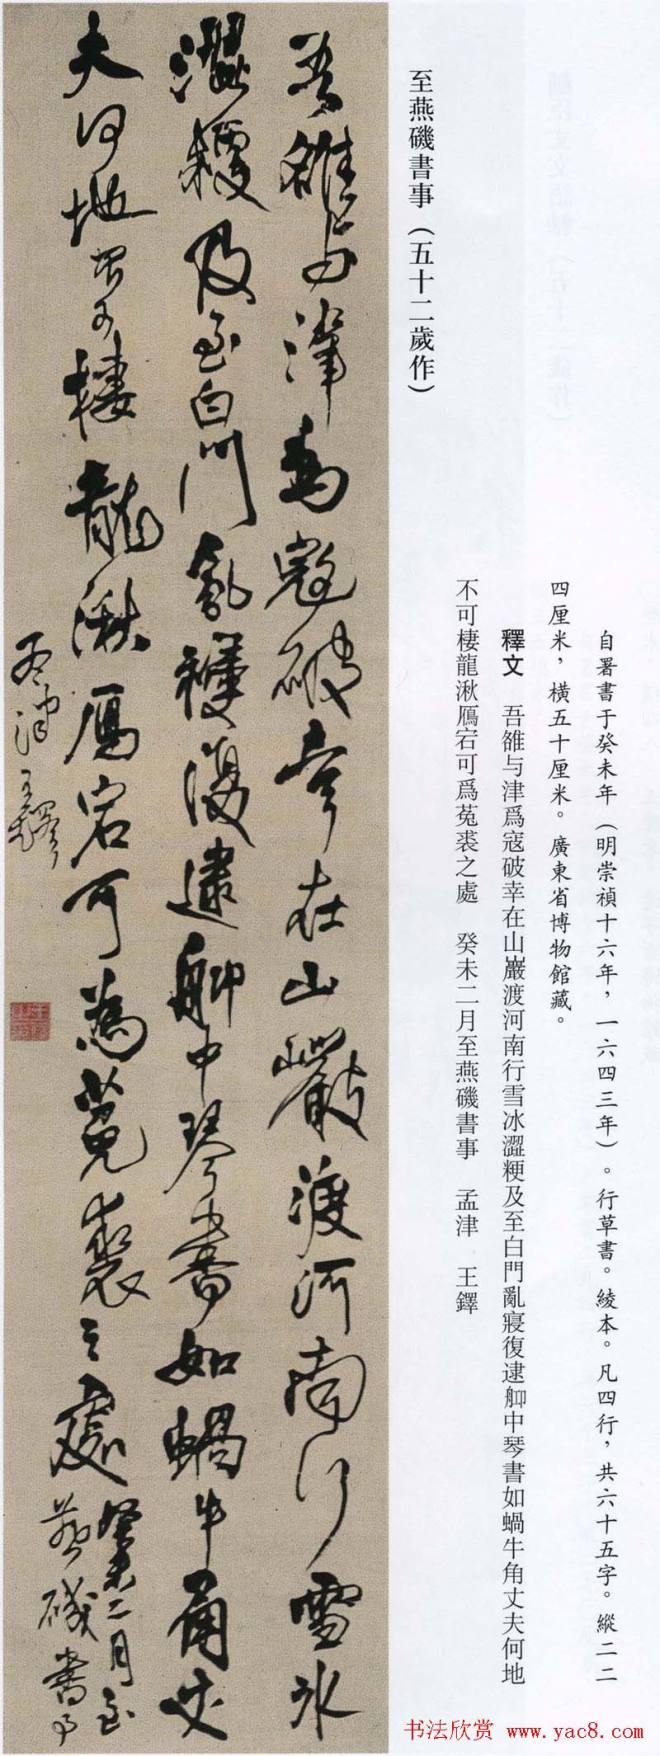 至燕磯書事（五十二歲作）
自署書于癸未年（明崇禎十六年，一六四三年）。行草書。綾本。凡四行，共六十五字。縱二二
四厘米，橫五十厘米。廣東省博物館藏。
釋文　吾雒与津爲寇破幸在山巖渡河南行雪冰澀粳及至白門亂寢復逮舺中琴書如蝸牛角丈夫何地
不可棲龍湫鴈宕可爲菟裘之處　癸未二月至燕磯書事　孟津　王鐸
吾雒与津爲寇破幸在山巖渡河南行雪冰
澀粳及至白門亂寢復逮舺中琴書如蝸牛角丈
夫何地不可棲龍湫鴈宕可爲菟裘之處 癸未二月至
燕磯書事
孟津王鐸
书法欣赏 www.yac8.com